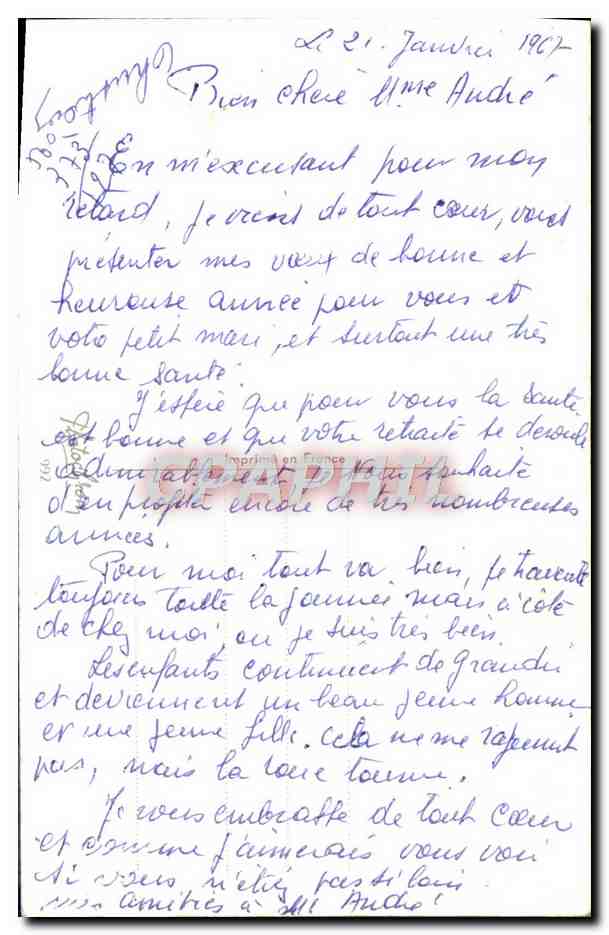 Le 21. Janvier 1967
Bien chère Mme André
En m'excusant pour mon
retard, je viens de tout cœur, vous
présenter mes vœux de bonne et
heureuse année pour vous et
votre petit mari, et surtout une très
bonne santé.
J'espère que pour vous la santé
est bonne et que votre retraite se déroule
admirablement. Vous souhaite
d'en profiter encore de très nombreuses
années.
Pour moi tout va bien, je travaille
toujours toute la journée mais à côté
de chez moi, où je suis très bien.
Les enfants continuent de grandir
et deviennent un beau jeune homme
et une jeune fille. Cela ne me rajeunit
pas, mais la roue tourne.
Je vous embrasse de tout cœur
et comme j'aimerais vous voir
si vous n'étiez pas si loin
mes amitiés à Mr André
Imprimé en France
CPAPHIL
992